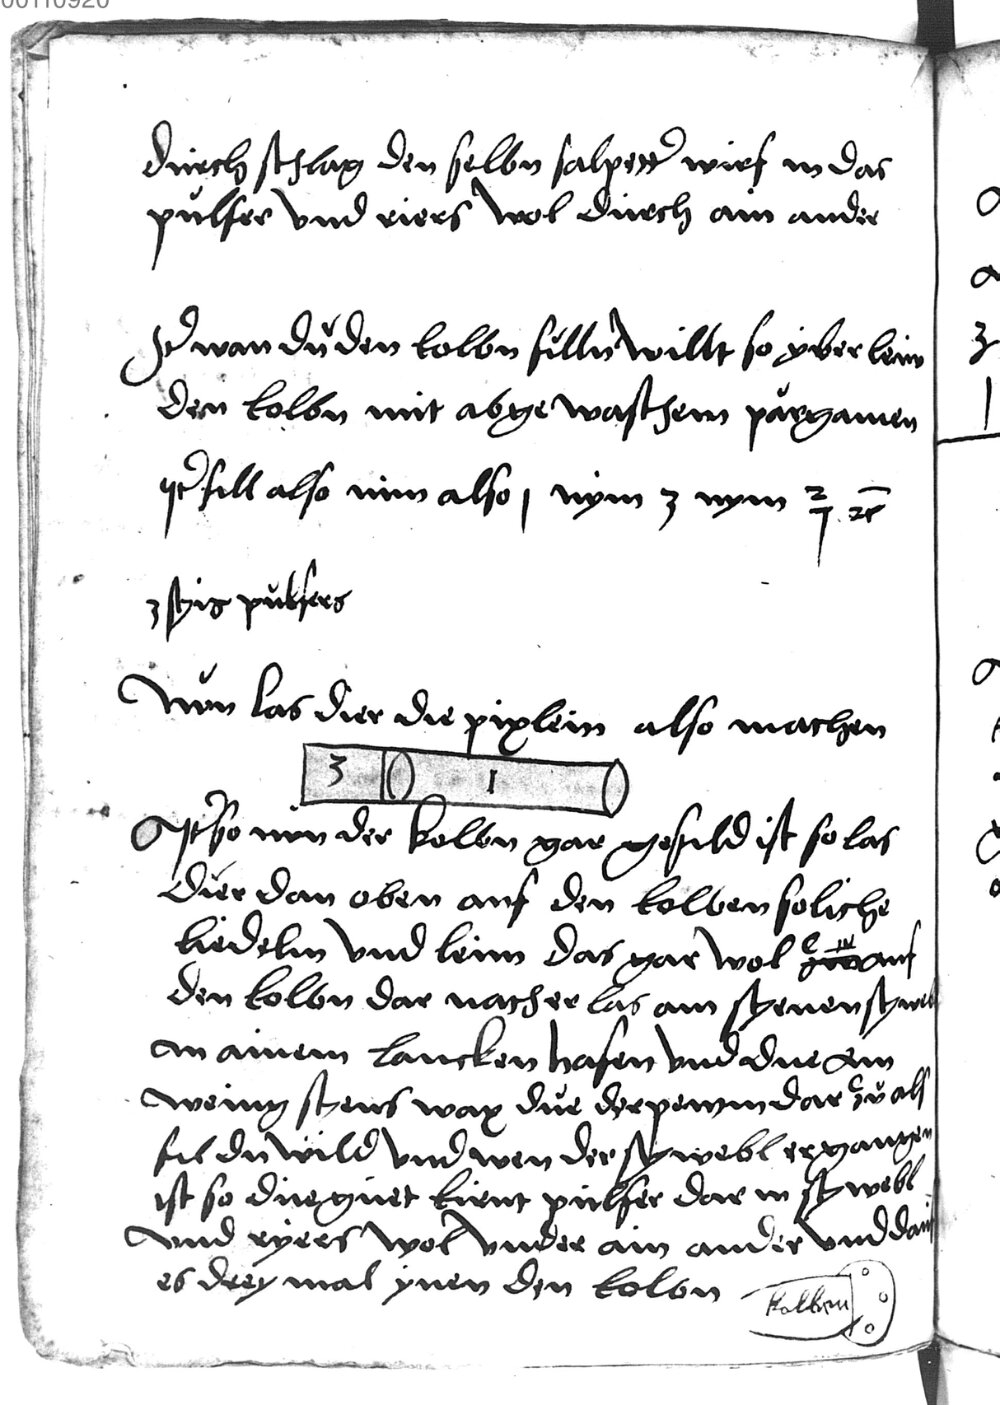 durch schlag den selbn salpetter wirf in das
pulfer vnd riers wol durch ain ander
Jt wan du den kolbn filln willt so yber leim
den kolbn mit abge waschem pargamen
Jt fill also nim also 1 nym 3 nym
3 pulfers
Nun las dier die pixlein also machen
3 1
Jt so nun der kolbn gar gefild ist so las
dier dan oben auf den kolben soliche
liedelin vnd leim das gar wol auf
den kolbn dar nach er las ain
in ainem lancken hafen vnd due ain
wenig wax due dar zu als
fil du wild vnd wen der schwebl ergangen
ist so due guet kirnt pulfer dar in schwebl
vnd ryers wol vnder ain ander vnd
es drey mal ynen den kolbn
kolben